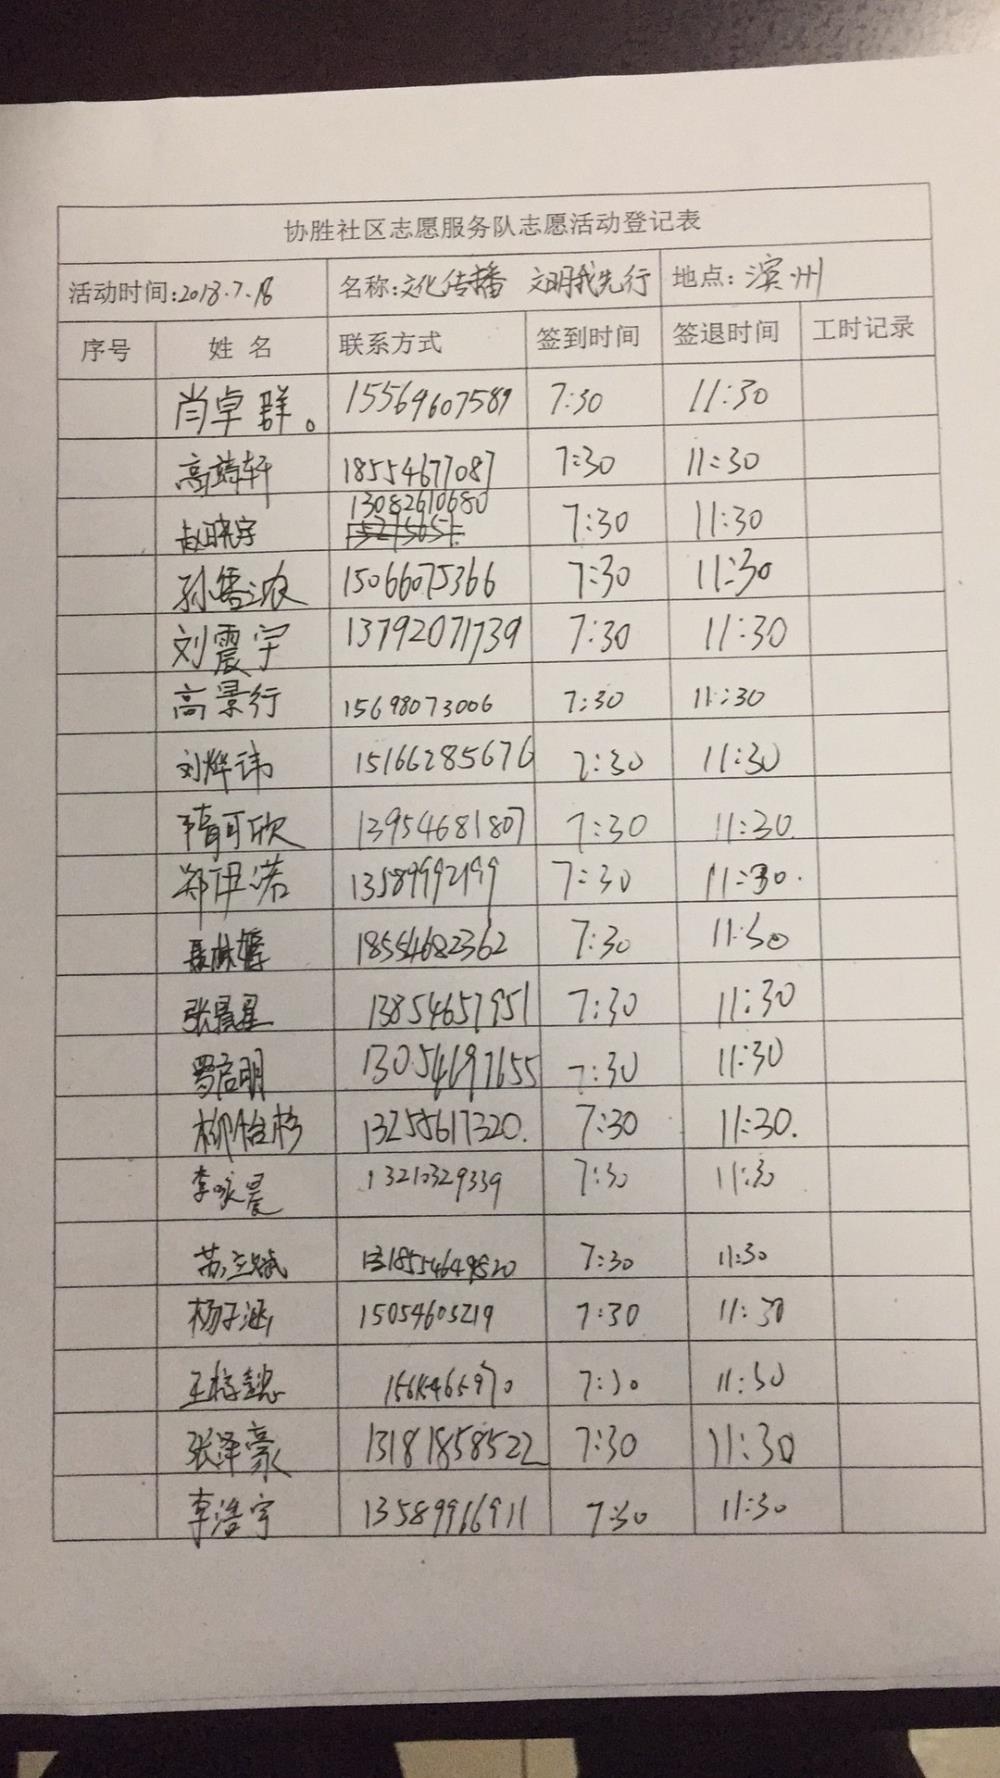 协胜社区志愿服务队志愿活动登记表
活动时间:2018.7.18 名称:文化传播 文明我先行 地点:滨州
序号 姓名 联系方式 签到时间 签退时间 工时记录
肖卓群。 15564607589 7:30 11:30
高靖轩 18554677087 7:30 11:30
赵晓宇 13082610680 7:30 11:30
孙雪浓 15066075366 7:30 11:30
刘震宇 13792071739 7:30 11:30
高景行 15698073006 7:30 11:30
刘烨讳 15166285676 7:30 11:30
隋可欣 13954681807 7:30 11:30.
郑伊诺 13589992199 7:30 11:30.
18554682362 7:30 11:30
张晨星 13854657951 7:30 11:30
罗启明 13054697655 7:30 11:30
柳怡杉 13255617320. 7:30 11:30.
李咏晨 13210329339 7:30 11:30
苏立斌 18554649820 7:30 11:30
杨子涵 15054605219 7:30 11:30
7:30 11:30
张泽豪 13181858522 7:30 11:30
李浩宇 13589966911 7:30 11:30